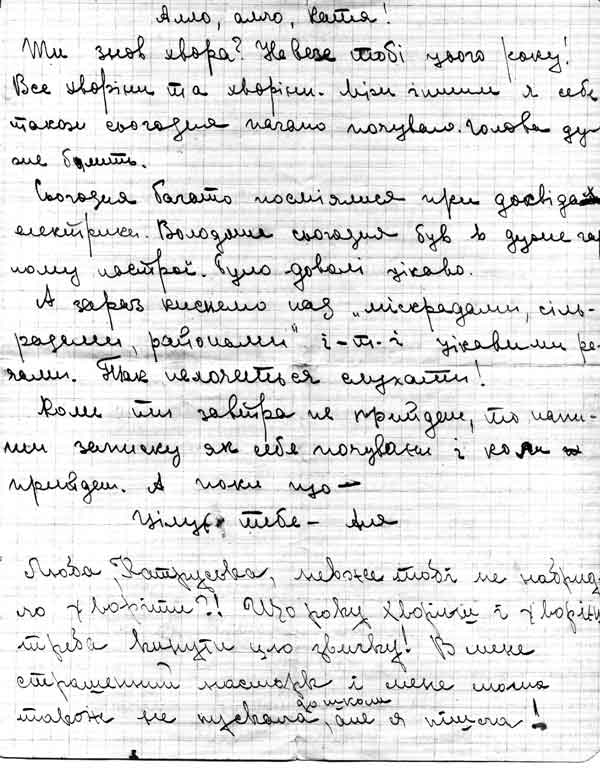 Алло, алло, Катя!
Ти знов хвора? Не везе тобі цього року!
Все хворієш та хворієш. Між іншим я себе
також сьогодня погано почуваю. Голова ду-
же болить.
Сьогодня багато посміялися при досвідах
електрики. Володимир сьогодня був в дуже гар
ному настрої. Було доволі цікаво.
А зараз киснемо над „міськрадами, сіль-
радами, районами" і-т-і цікавими ре-
чами. Так нехочеться слухати!
Коли ти завтра не прийдеш, то напи-
ши записку як себе почуваєш і коли
прийдеш. А поки що —
Цілую тебе — Аля
Люба Катрусенька, невже тобі не набрид-
ло хворіти?! Що року хворієш і хворієш
треба кинути цю звичку! В мене
страшенний насморк і мене мама
також не пускала до школи, але я пішла!